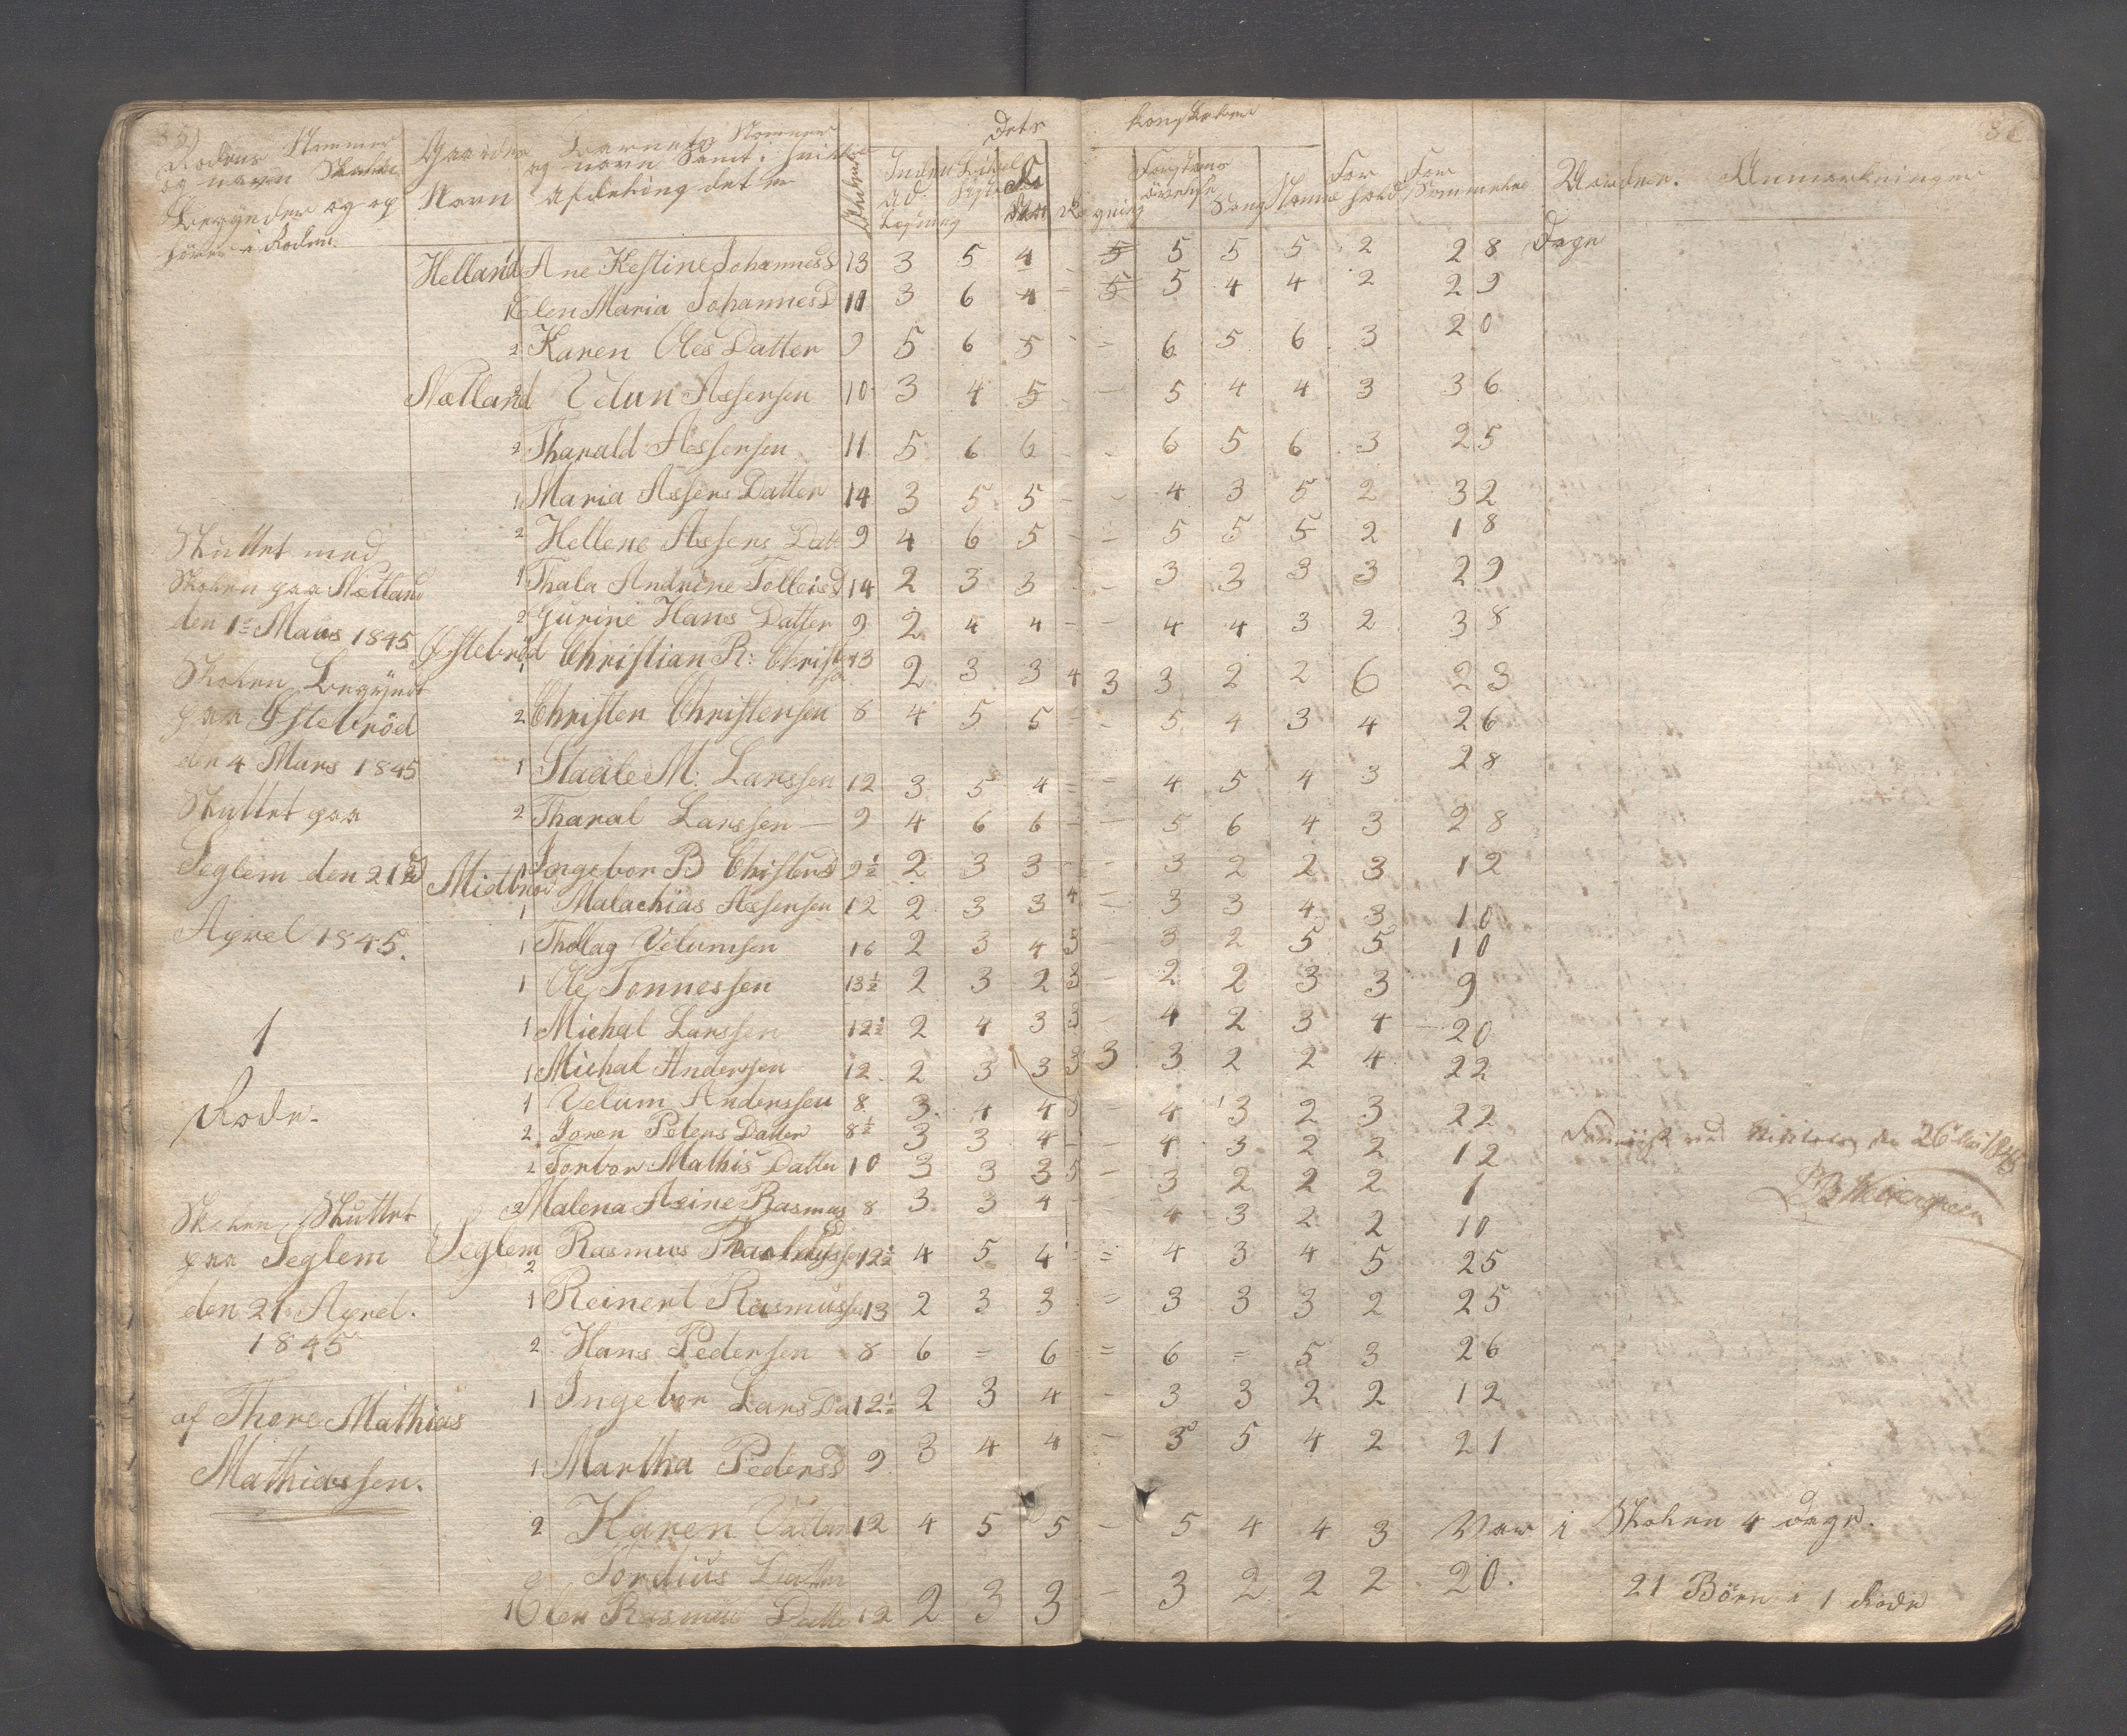 Rodens Nummer Gaardens Barnets Nummer Dets Kundskaber
og navn Skolen Navn og navn Samt i hvilken
Begynder og op afdeling det er
hører i Roden
Forstands øvelse Sang For hold For Sømmelse Dage Anmærkninger
Helland Ane Kestine Johannes D 13 3 5 4 - 5 5 5 5 2 28 Dage
1 Elen Maria Johannes D 11 3 6 4 = 5 5 4 4 2 29
2 Karen Oles Datter 9 5 6 5 - = 6 5 6 3 20
Nætland 2 Velun Assersen 10 3 4 5 - - 5 4 4 3 36
2 Tharald Assersen 11 5 6 6 - - 6 5 6 3 25
1 Maria Assers Datter 14 3 5 5 - - 4 3 5 2 32
2 Hellene Assers Dat 9 4 6 5 - = 5 5 5 2 18
Skuttet med
1 Thala Andrine Tolleis D 14 2 3 3 - - 3 3 3 3 29
Skolen paa Nætland
2 Gurine Hans Datter 9 2 4 4 - - 4 4 3 2 38
den 1te Mars 1845
Østebrød 1 Christian R: Christ 13 2 3 3 4 3 3 2 2 6 23
Skolen Begyndt
paa Østebrød
2 Christen Christensen 8 4 5 5 = - 5 4 3 4 26
den 4 Mars 1845
1 Staale M: Larssen 12 3 5 4 = = 4 5 4 3 28
Skuttet paa
2 Tharal Larssen 9 4 6 6 - - 5 6 4 3 28
Seglem den 21de
Midbrød 1 Ingebor B Christens D 9½ 2 3 3 - - 3 2 2 3 12
1 Malachias Assersen 12 2 3 3 4 - 3 3 4 3 10
Aprel 1845.
1 Thollag Velumsen 16 2 3 4 3 - 3 2 5 5 10
1 Ole Tonnessen 13½ 2 3 2 3 - 2 2 3 3 9
1
1 Michal Larssen 12½ 2 4 3 3 - 4 2 3 4 20
1 Michal Anderssen 12 2 3 3 3 3 3 2 2 4 22
Rode.
1 Velum Anderssen 8 3 4 4 3 - 4 3 2 3 22
2 Soren Peters Datter 8½ 3 3 4 - - 4 3 2 2 12 den 26
2 Torbor Mathis Datter 10 3 3 3 5 - 3 2 2 2 1
2 Malena Asine Rasmus D 8 3 3 4 - - 4 3 2 2 10
Skolen Skuttet
paa Seglem
Seglem 2 Rasmus 12½ 4 5 4 = = 4 3 4 5 25
den 21 Aprel.
1 Reinert Rasmussen 13 2 3 3 = 3 3 3 2 25
1845
2 Hans Pedersen 8 6 = 6 = 6 = 5 3 26
af Thore Mathias
1 Ingebor Lars Da 12½ 2 3 4 - 3 3 2 2 12
Mathiassen.
1 Martha Peders D 9 3 4 4 - 3 5 4 2 21
2 Karen Datter 12 4 5 5 - 5 4 4 3 Var i Skolen 4 dage.
Tordius Datter
1 Elen Rasmus Datte 12 2 3 3 - 3 2 2 2 20. 21 Børn i 1 Rode